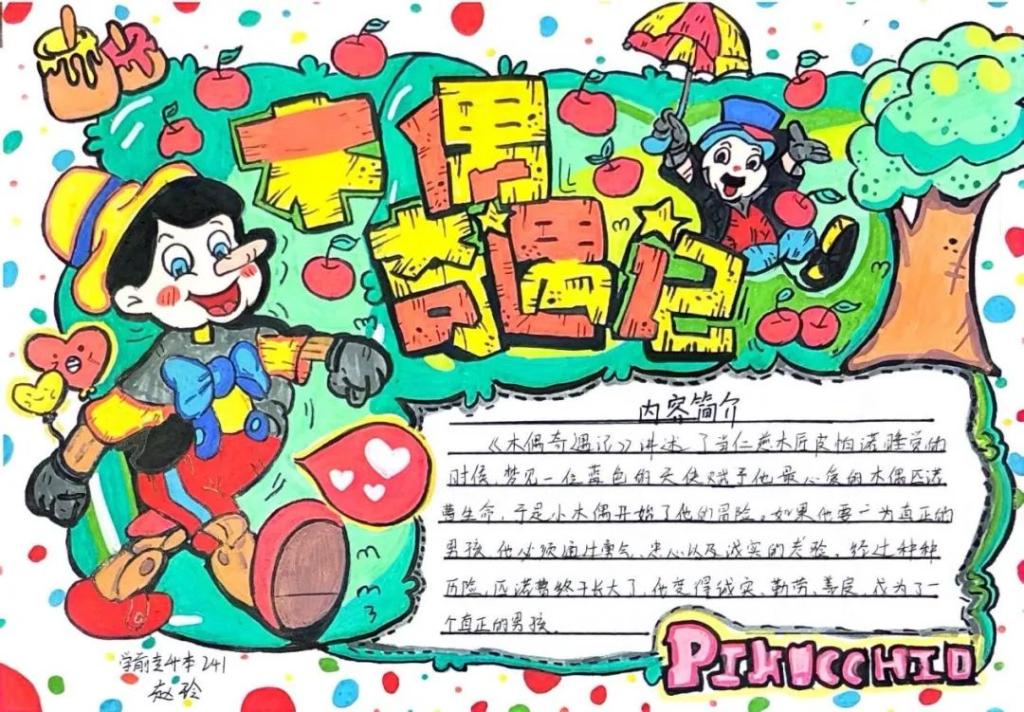 木偶
奇遇记
内容简介
《木偶奇遇记》讲述了当仁慈木匠皮帕诺睡觉的
时候,梦见一位蓝色的天使赋予他最心爱的木偶匹诺
曹生命,于是小木偶开始了他的冒险。如果他要一为真正的
男孩,他必须通过勇气、忠心以及诚实的考验,经过种种
历险,匹诺曹终于长大了,他变得诚实、勤劳、善良,成为了一
个真正的男孩.
PINOCCHIO
学前专升本241
赵玲